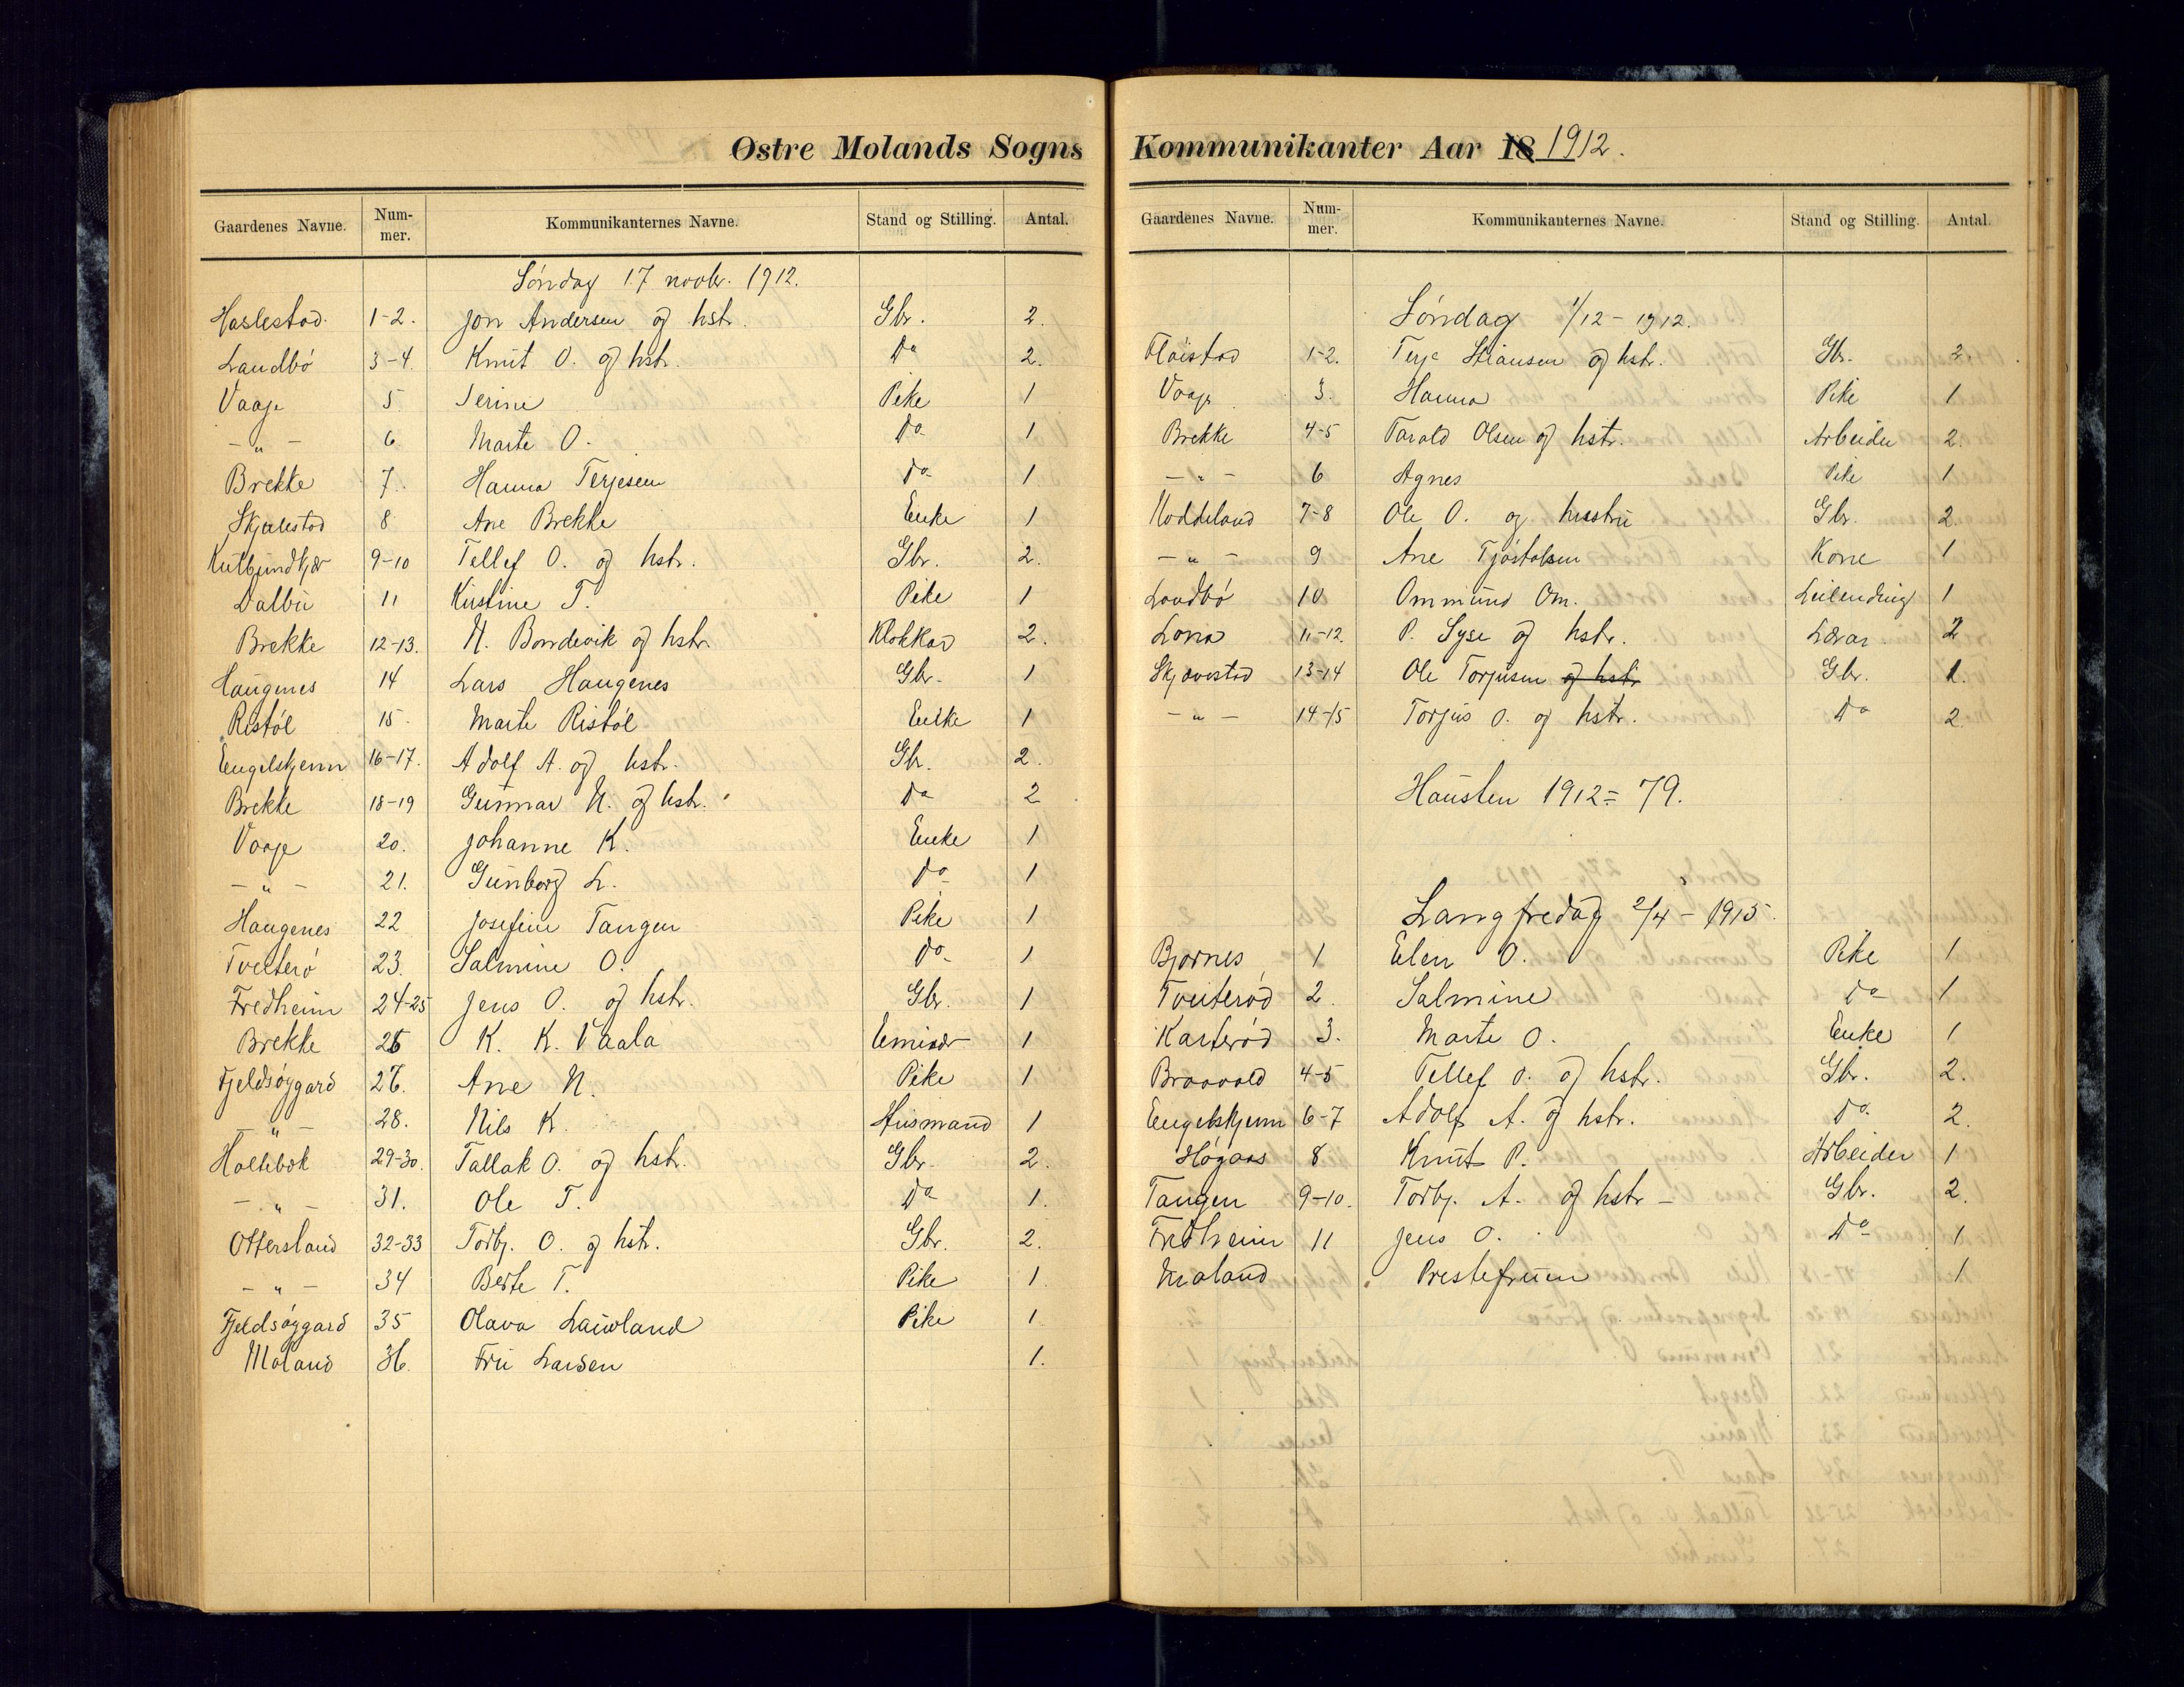 Østre Molands Sogns
Gaardenes Navne. Nummer. Kommunikanternes Navne. Stand og Stilling. Antal.
Søndag 17 novbr. 1912.
Haslestad 1-2. Jon Andersen og hstr. Gbr. 2.
Landbö 3-4. Knut O. og hstr. Do 2.
Vaage 5 Serine Pike 1
- " - 6 Marte O. Do 1
Brekke 7. Hanna Terjesen Do 1
Skjulestad 8 Ane Brekke Enke 1
9-10 Tellef O. og hstr. Gbr. 2.
Dalbu 11 Kirstine T. Pike 1
Brekke 12-13. N. Bondevik og hstr. Klokkar 2.
Haugenes 14 Lars Haugenes Gbr. 1
Ristöl 15 Marte Ristöl Enke 1
Engelskjenn 16-17. Adolf A. og hstr. Gbr. 2.
Brekke 18-19 Gunnar N. og hstr. Do 2
Vaage 20. Johanne K. Enke 1
- " - 21. Gunborg L. Do 1
Haugenes 22 Josefine Tangen Pike 1
Tveiterö 23. Salmine O. Do 1
Fredheim 24-25 Jens O. og hstr. Gbr. 1
Brekke 26 K. K. Vaala 1
Fjeldsöygard 27. Ane N. Pike 1
- " - 28. Nils K. Husmand 1
Holtebok 29-30. Tallak O. og hstr. Gbr. 2.
- " - 31. Ole T. Do 1.
Ottersland 32-33 Torbj. O. og hstr. Gbr. 2.
- " - 34 Berte T. Pike 1.
Fjeldsöygard 35 Olava Lauvland Pike 1
Moland 36. Fru Larsen 1.
Kommunikanter Aar 18 1912.
Gaardenes Navne. Nummer. Kommunikanternes Navne. Stand og Stilling. Antal.
Søndag 1/12 - 1912.
Flöistad 1-2. Terje Stiansen og hstr. Gbr. 2.
Vaage 3. Hanna Pike 1
Brekke 4-5 Tarald Olsen og hstr. Arbeider 2.
- " - 6 Agnes Pike 1
Noddeland 7-8 Ole O. og hustru Gbr. 2
- " - 9 Ane Tjöstolsen Kone 1
Landbö 10 Ommund Om. Leilending 1
Lona 11-12. P. Lyse og hstr. Lærar 2
Skjævestad 13-14 Ole Torjusen og hstr Gbr. 1.
- " - 14-15 Torjus O. og hstr. Do 2.
Hausten 1912 = 79.
Langfredag 2/4 - 1915.
Bjornes 1 Elen O. Pike 1
Tveiteröd 2. Salmine Do 1
Karteröd 3. Marte O. Enke 1
Braavold 4-5 Tellef O. og hstr. Gbr. 2.
Engelskjenn 6-7 Adolf A. og hstr. Do 2.
Högaas 8 Knut P. Arbeider 1
Tangen 9-10. Torbj. A. og hstr - Gbr. 2.
Fredheim 11 Jens O. Do 1
Moland Prestefruen 1